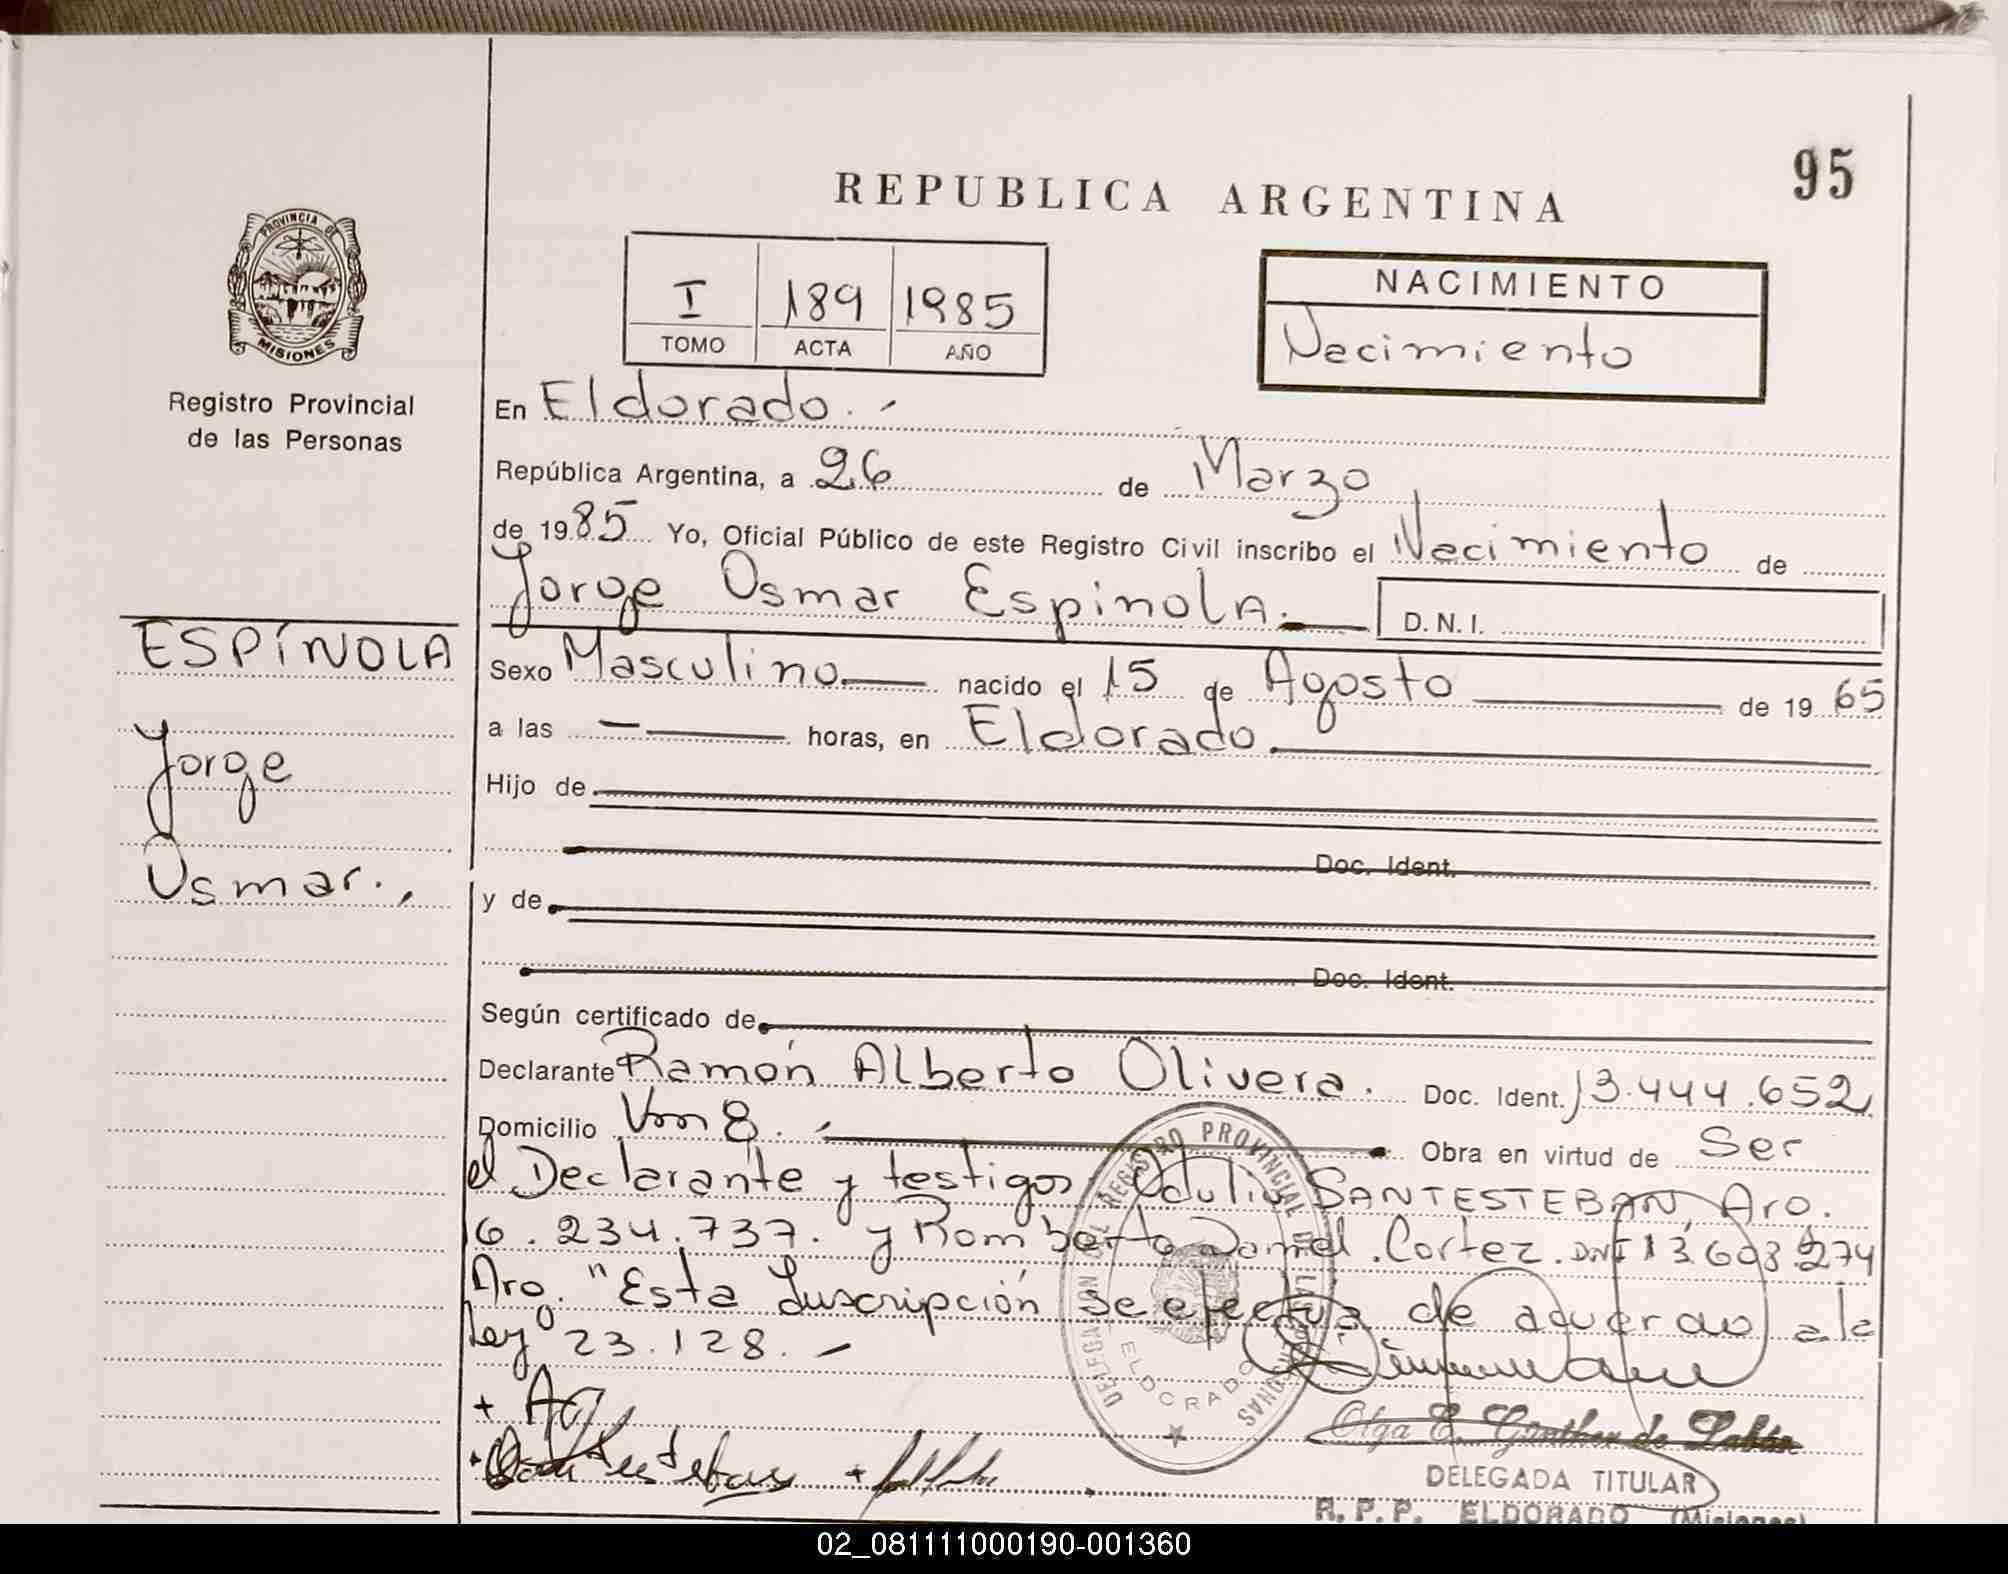 95
REPUBLICA ARGENTINA
PROVINCIA DE
MISIONES
Registro Provincial
de las Personas
I 189 1985
TOMO ACTA AÑO
NACIMIENTO
Nacimiento
En Eldorado.-
República Argentina, a 26 de Marzo
de 1985 Yo, Oficial Público de este Registro Civil inscribo el Nacimiento de
Jorge Osmar EspinolA. D.N.I.
ESPÍNOLA
Jorge
Osmar.,
Sexo Masculino nacido el 15 de Agosto de 1965
a las — horas, en Eldorado
Hijo de
Doc. Ident.
y de
Doc. Ident.
Según certificado de
Declarante Ramón Alberto Olivera. Doc. Ident. 13.444.652
Domicilio Km 8. - Obra en virtud de Ser
el Declarante y testigos Odulio SANTESTEBAN, Arg.
6.234.737. y Romberto Daniel Cortez. DNI 13.603.274
Arg. "Esta Inscripción se efectua de acuerdo a la
Ley 23.128.-
DELEGACION DEL REGISTRO PROVINCIAL DE LAS PERSONAS
ELDORADO
Olga E. Günther de
DELEGADA TITULAR
R. P. P. ELDORADO (Misiones)
02_081111000190-001360